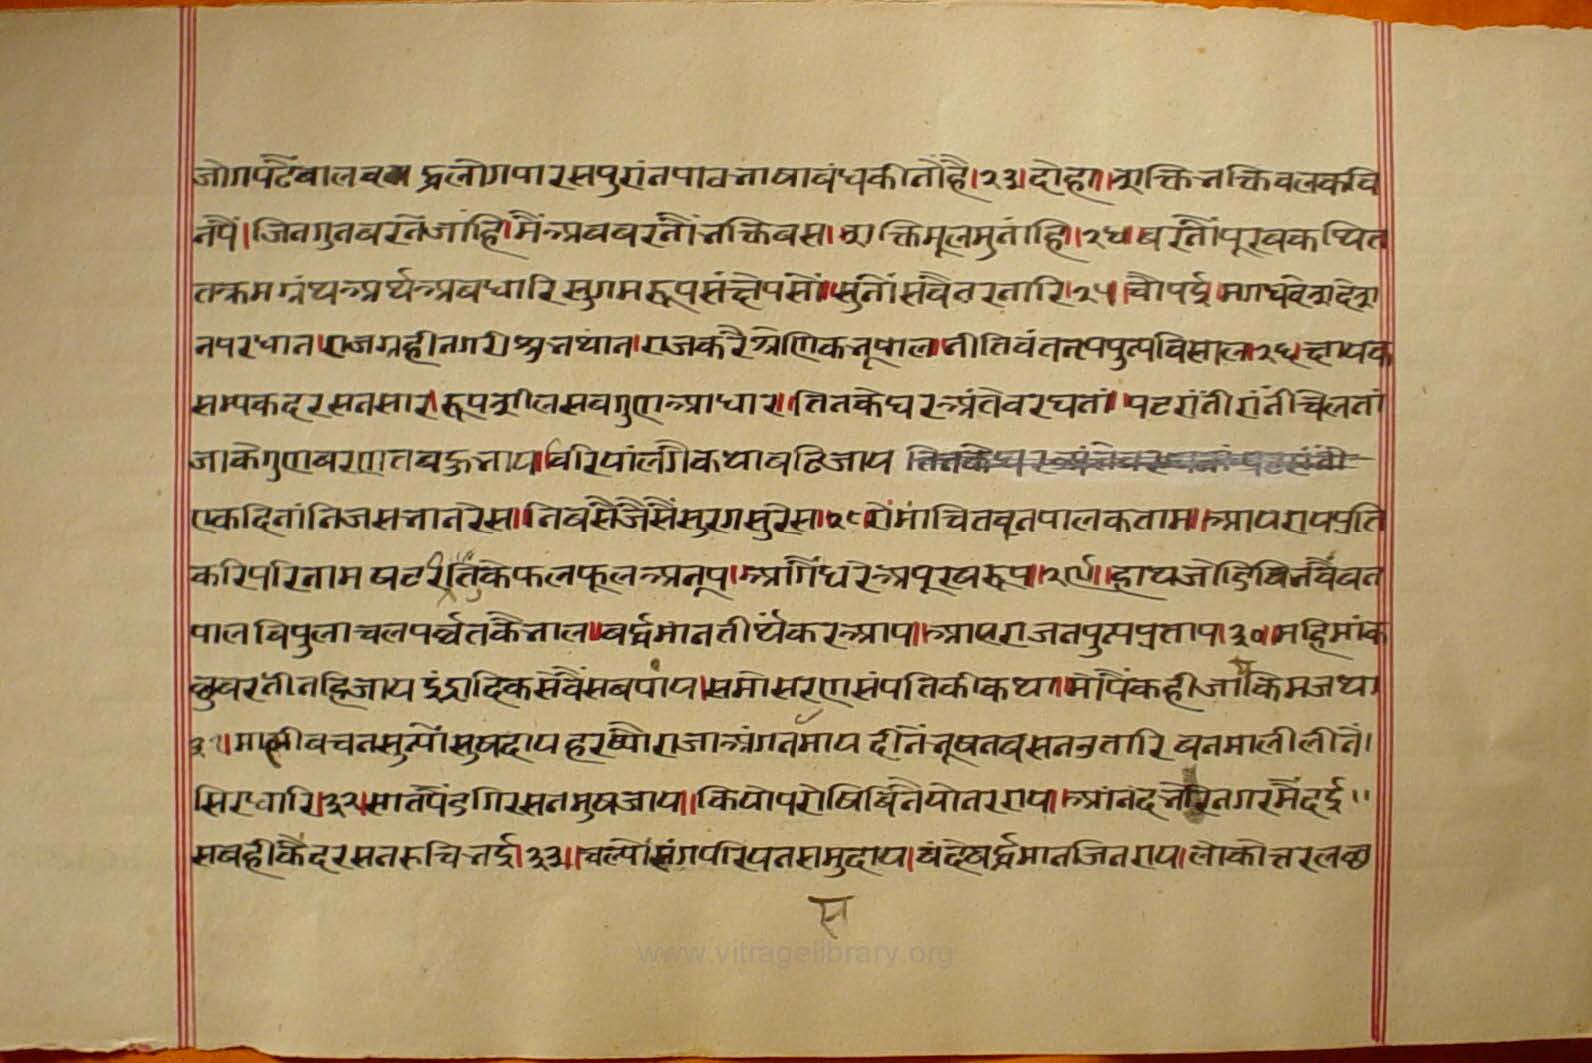 जोगपढैबालबाल प्रलोगपारसपुरांनपावभाषाबंधकीनौहै।२३।दोहा।शक्तिभक्तिबलकवि
नपैं।जिनगुनबरनेजांहि।मैंअबबरनौंभक्तिबस।शक्तिमूलमुनांहि।२४।बरनौंपूरबकथित
तक्रमग्रंथअर्थअवधारिसुगमरूपसंछेपसौं।सुनौंसबैनरनारि।२५।चौपई।मगधदेशदेश
नपरधान।राजग्रहीनगरीशुभथांन।राजकरैश्रेणिकभूपाल।नीतिवंतनृपपुन्यविसाल२६छायक
सम्यकदरसनसार।रूपशीलसबगुणआधार।तिनकेघरअंतेवरघनां।पटरांनीरांनीचेलनां
जाकेगुणबरणतबहुभाय।विरियांलगैकथाबढिजाय
एकदिनांनिजसभानरेस।निवसैजैसैंसुरगसुरेस।२८।रोमांचितवनपालकनाम।आयरायप्रति
करिपरिनाम षटरितुकेफलफूलअनूप।आगैंधरेअपूरबरूप।२९।हाथजोडिबिनवैंवन
पाल विपुलाचलपर्व्वतकैभाल।वर्द्धमानतीर्थंकरआप।आएराजनपुन्यप्रताप।३०।महिमांक
छुबरनीनहिजाय इंद्रादिकसेवैंसबपांय।समोसरणसंपतिकीकथा।मोपैंकहीजायकिमजथा
३१।मालीबचनसुन्यौंसुषदाय हरष्यौराजाअंगनमाय दीनेंभूषनबसनउतारि बनमालीलीनैं।
सिरधारि।३२।सातपैंडगिरसनमुषजाय।कियोपरोषिबिनैयोनरराय।आनंदभेरिनगरमैंदई॥
सबहीकैंदरसनरुचिभई।३३।चल्यौसंगपरियनसमुदाय।बंदेबर्द्धमानजिनराय।लोकोत्तरलछ
www.vitragelibrary.org